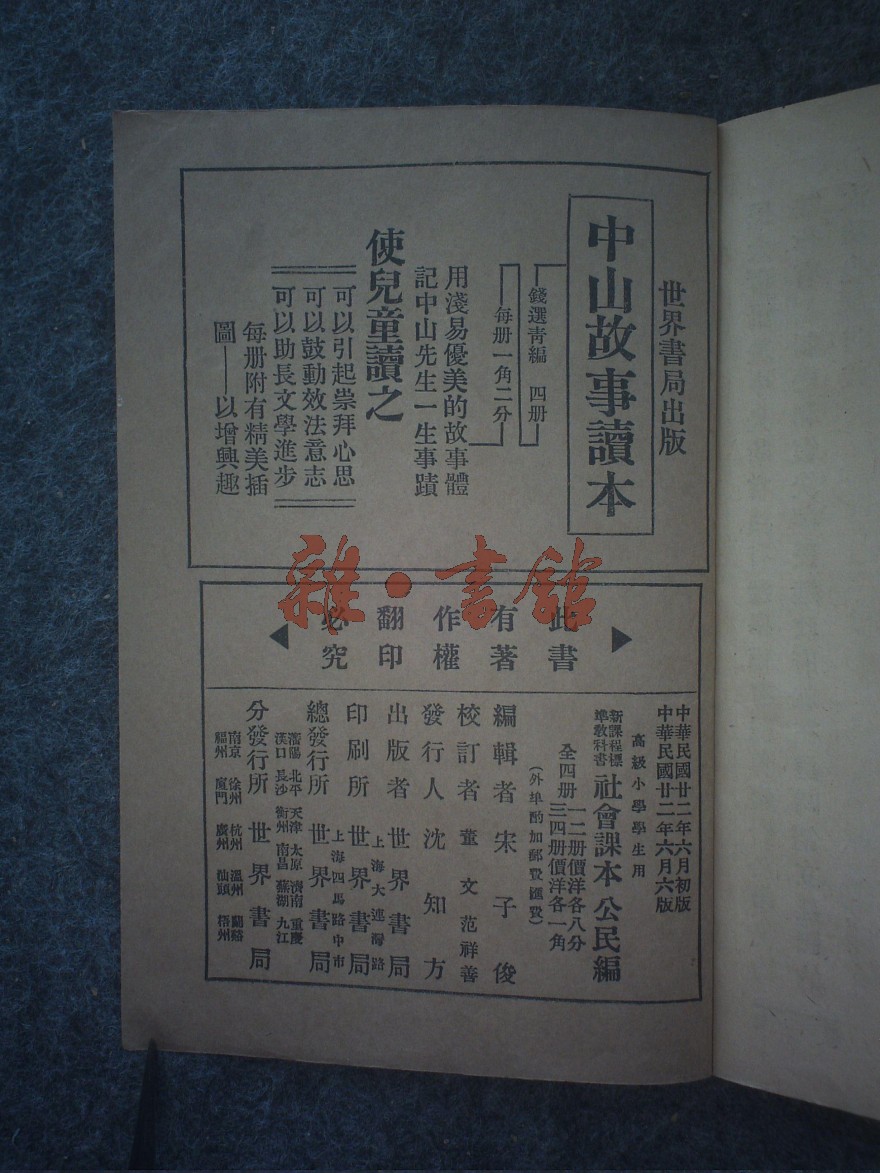 世界書局出版
中山故事讀本
錢選青編 四册
每册一角二分
用淺易優美的故事體
記中山先生一生事蹟
使兒童讀之
可以引起崇拜心思
可以鼓動效法意志
可以助長文學進步
每册附有精美插
圖——以增興趣
雜·書館
此書
有著
作權
翻印
必究
中華民國廿二年六月初版
中華民國廿二年六月六版
高級小學學生用
新課程標
準教科書
社會課本 公民編
全四册
一二册價洋各八分
三四册價洋各一角
(外埠酌加郵費匯費)
編輯者 宋子俊
校訂者 董文 范祥善
發行人 沈知方
出版者 世界書局
上海大連灣路
印刷所 世界書局
上海四馬路中市
總發行所 世界書局
瀋陽 北平 天津 太原 濟南 重慶
漢口 長沙 衡州 南昌 蕪湖 九江
分發行所 世界書局
南京 徐州 杭州 溫州 蘭谿
福州 廈門 廣州 汕頭 梧州